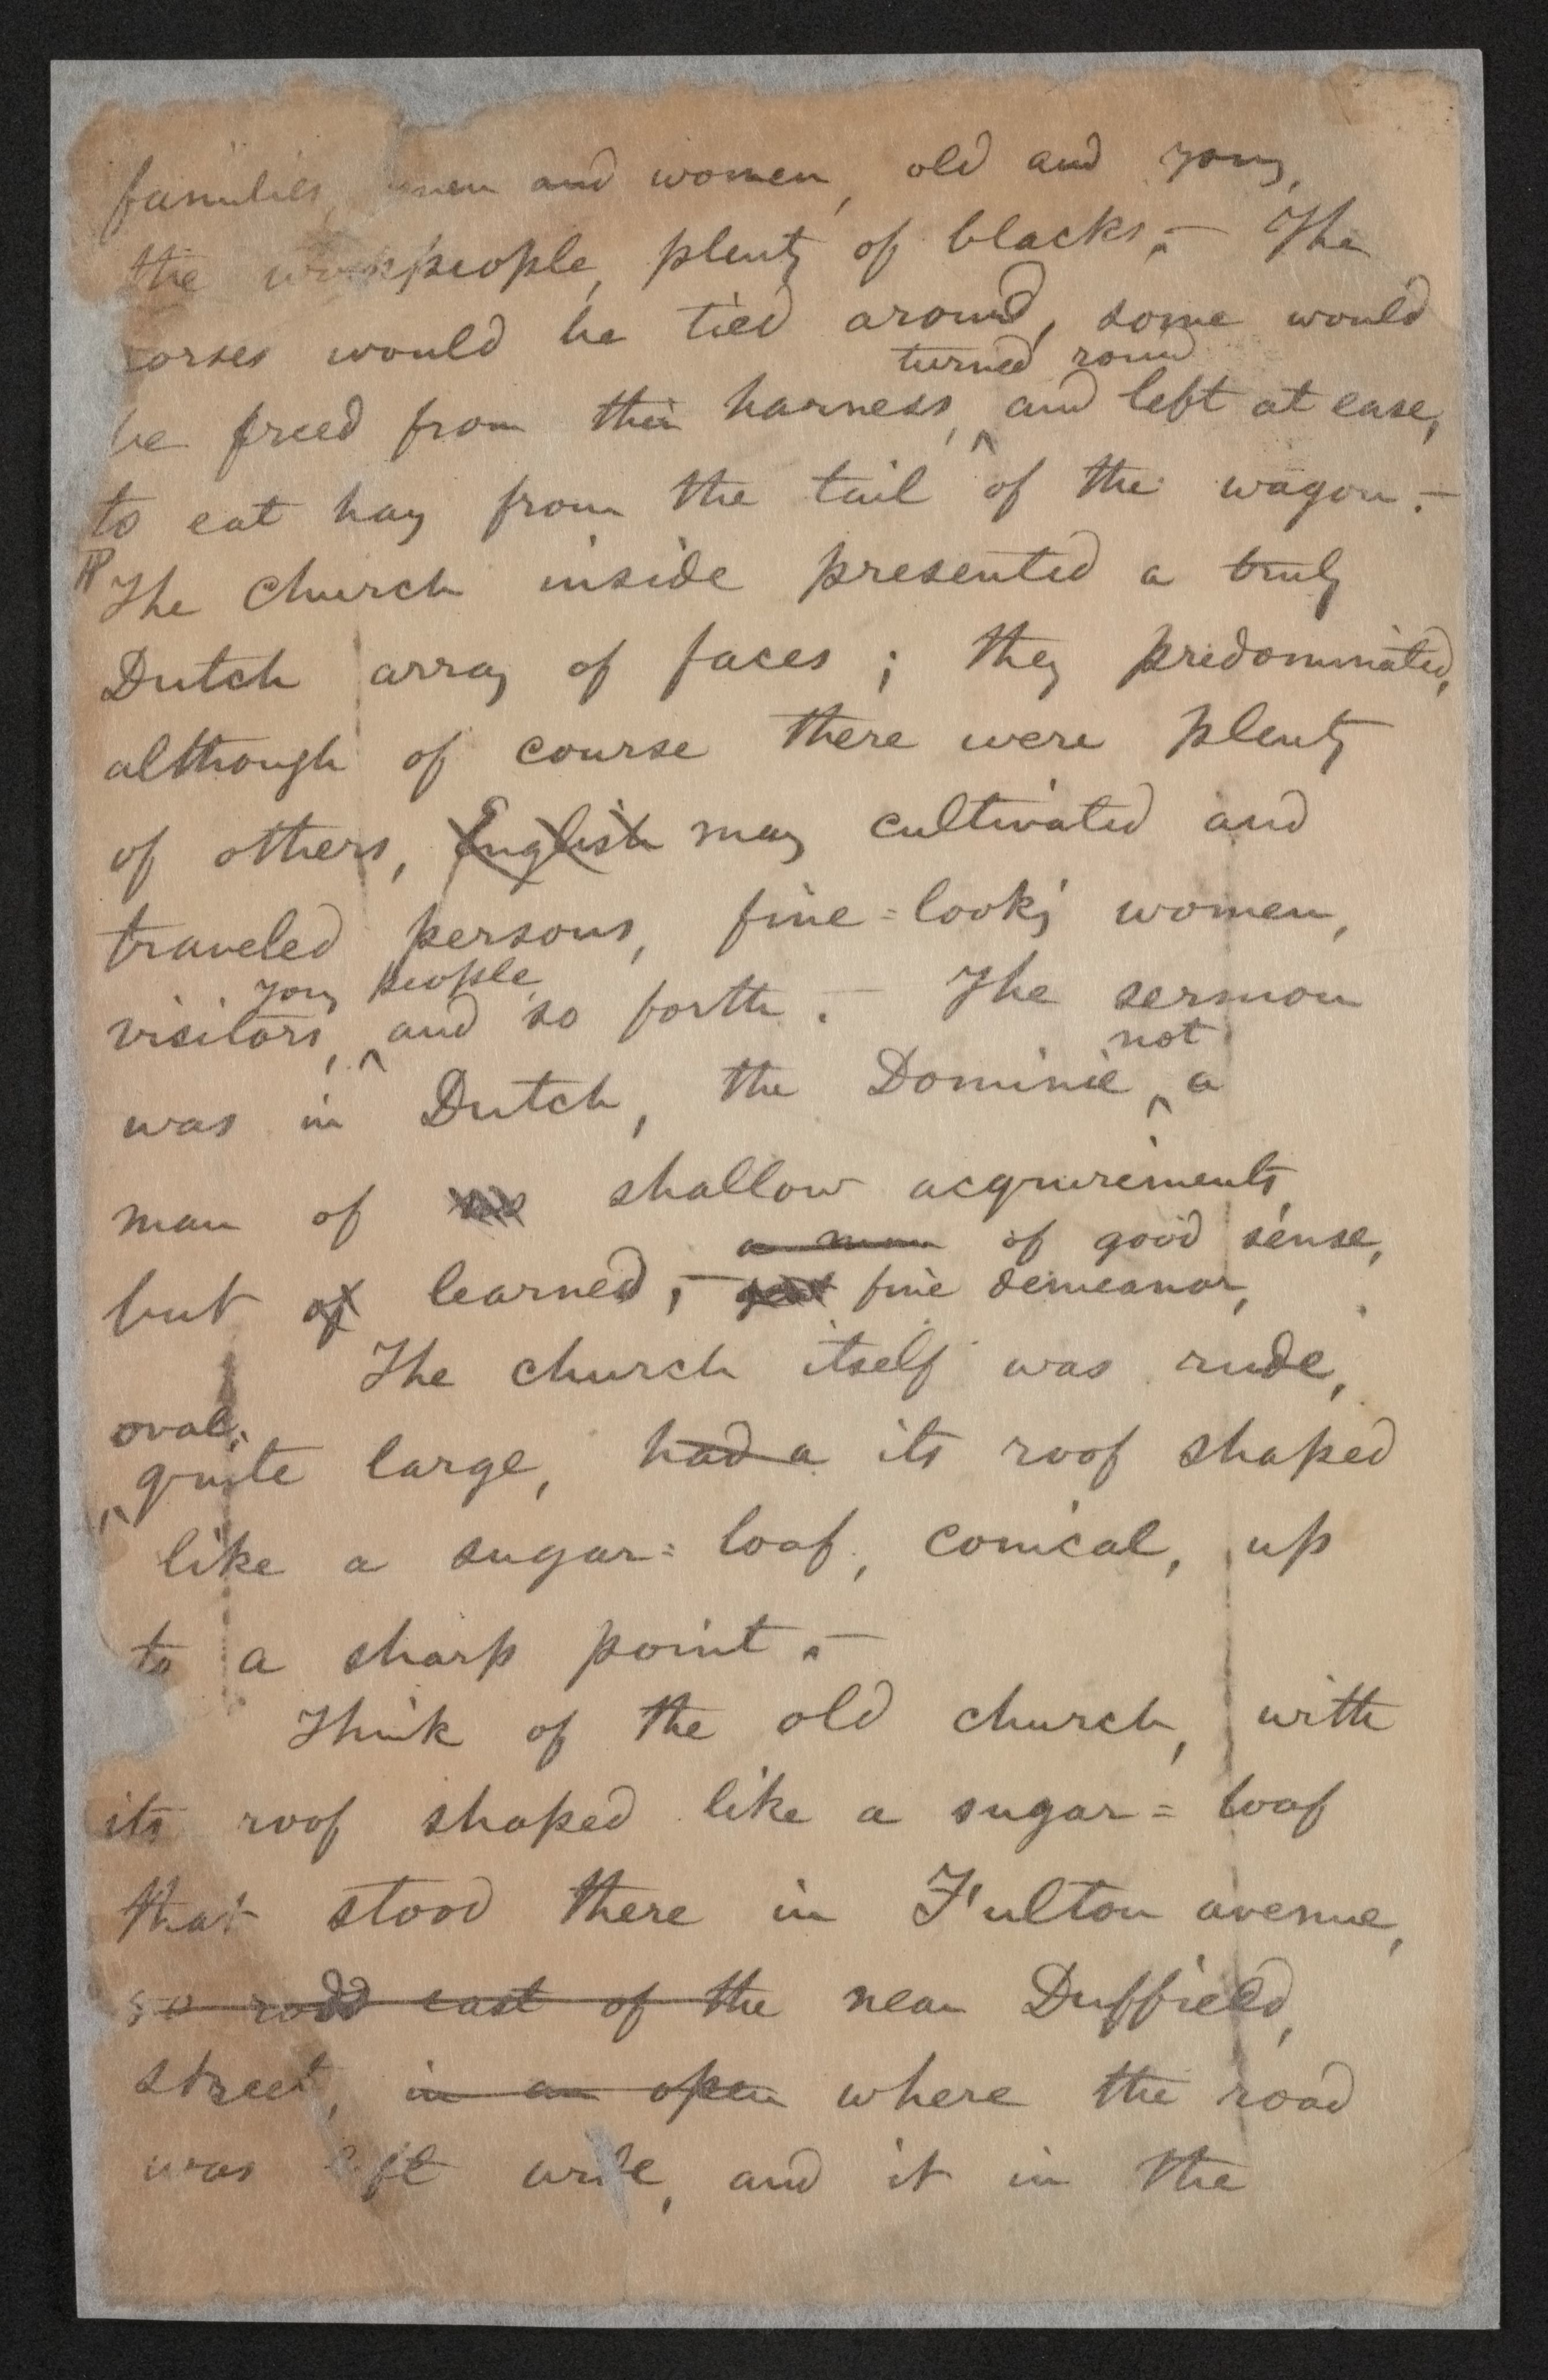 families, men and women, old and young,
the workpeople, plenty of blacks.— The
orses would be tied around, some would
turned round
be freed from their harness, ^ and left at ease,
to eat hay from the tail of the wagon.—
The church inside presented a truly
Dutch array of faces; they predominated,
although of course there were plenty
of others, English many cultivated and
traveled persons, fine=look'g women,
young people
visitors, ^ and so forth.— The sermon
not
was in Dutch, the Dominie ^ a
man of no shallow acquirements
a man of good sense,
but of learned,— fine demeanor,
The church itself was rude,
oval,
^ quite large, had a its roof shaped
like a sugar=loaf, conical, up
to a sharp point.—
Think of the old church, with
its roof shaped like a sugar=loaf
that stood there in Fulton avenue,
so rods east of the near Duffield,
street, in an open where the road
was left wide, and it in the